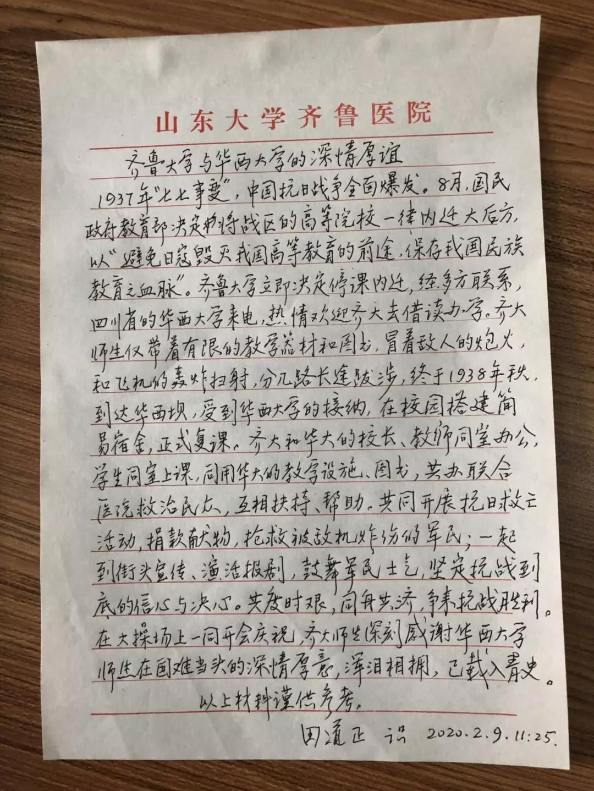 山东大学齐鲁医院
齐鲁大学与华西大学的深情厚谊
1937年“七七事变”，中国抗日战争全面爆发。8月，国民
政府教育部决定将战区的高等院校一律内迁大后方，
以“避免日寇毁灭我国高等教育的前途，保存我国民族
教育之血脉”。齐鲁大学立即决定停课内迁，经多方联系，
四川省的华西大学来电，热情欢迎齐大去借读办学。齐大
师生仅带着有限的教学器材和图书，冒着敌人的炮火，
和飞机的轰炸扫射，分几路长途跋涉，终于1938年秋，
到达华西坝，受到华西大学的接纳，在校园搭建简
易宿舍，正式复课。齐大和华大的校长、教师同室办公，
学生同室上课，同用华大的教学设施、图书，共办联合
医院救治民众，互相扶持、帮助。共同开展抗日救亡
活动，捐款献物，抢救被敌机炸伤的军民；一起
到街头宣传、演活报剧，鼓舞军民士气，坚定抗战到
底的信心与决心。共度时艰，同舟共济，争来抗战胜利。
在大操场上一同开会庆祝，齐大师生深刻感谢华西大学
师生在国难当头的深情厚意，浑泪相拥，已载入青史。
以上材料谨供参考。
田道正 识 2020.2.9.11:25.